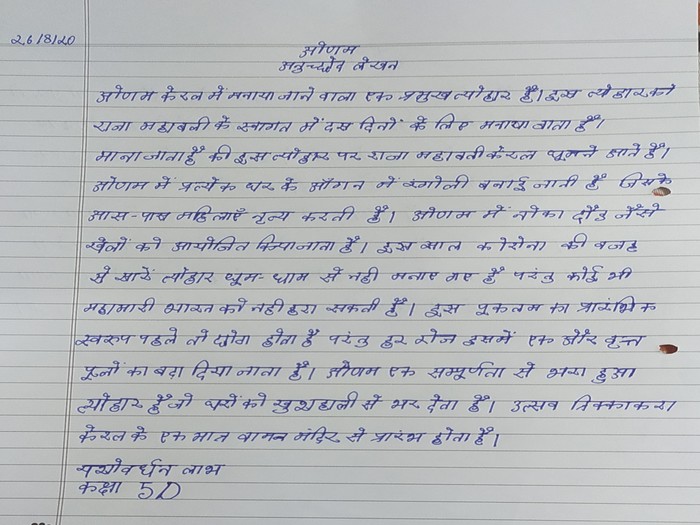 26/8/20
ओणम
अनुच्छेद लेखन
ओणम केरल में मनाया जाने वाला एक प्रमुख त्योहार हैं। इस त्योहार को
राजा महाबली के स्वागत में दस दिनों के लिए मनाया जाता हैं।
माना जाता हैं की इस त्योहार पर राजा महाबली केरल घूमने आते हैं।
ओणम में प्रत्येक घर के आँगन में रंगोली बनाई जाती हैं जिसके
आस-पास महिलाएँ नृत्य करती हैं। ओणम में नोका दौड़ जैसे
खेलों को आयोजित किया जाता हैं। इस साल कोरोना की वजह
से सारें त्योहार धूम-धाम से नही मनाए गए हैं परंतु कोई भी
महामारी भारत को नही हरा सकती हैं। इस पूकलम का प्रारंभिक
स्वरुप पहले तो छोटा होता हैं परंतु हर रोज इसमें एक और वृत्त
फूलों का बढ़ा दिया जाता हैं। ओणम एक सम्पूर्णता से भरा हुआ
त्योहार हैं जो घरों को खुशहाली से भर देता हैं। उत्सव त्रिक्काकरा
केरल के एक मात्र वामन मंदिर से प्रारंभ होता हैं।
यशोवर्धन लाभ
कक्षा 5D